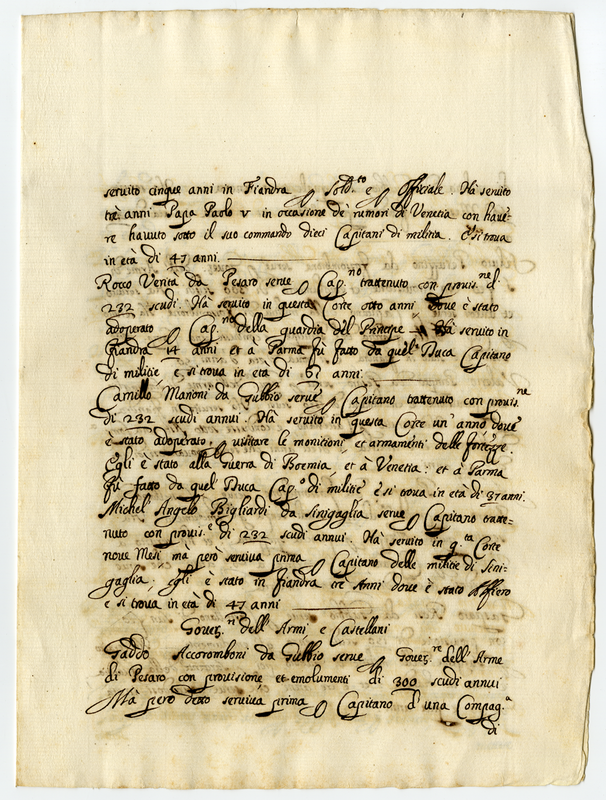 servito cinque anni in Fiandra p Sold.to e p Officiale. Hà servito
tre anni Papa Paolo V in occasione de rumori di Venetia con have=
re havuto sotto il suo commando dieci Capitani di militia. E si trova
in età di 47 anni.
Rocco Verità da Pesaro serve p Cap.no trattenuto con provis.ne d
232 scudi. Hà servito in questa Corte otto anni dove è stato
adoperato p Cap.no della guardia del Principe Hà servito in
Fiandra 14 anni et à Parma fù fatto da quel Duca Capitano
di militie, e si trova in età di 61 anni.
Camillo Manoni da Gubbio serve p Capitano trattenuto con provis.ne
di 232 scudi annui. Hà servito in questa Corte un'anno dove
è stato adoperato p visitare le monitioni, et armamenti delle fortezze.
Egli è stato alla Guerra di Boemia, et à Venetia: et à Parma
fù fatto da quel Duca Cap.o di militie e si trova in età di 37 anni.
Michel Angelo Bigliardi da Sinigaglia serve p Capitano tratte=
nuto con provis.e di 232 scudi annui. Hà servito in q.ta Corte
nove Mesi mà però serviva prima p Capitano delle militie di Sini=
gaglia. Egli è stato in fiandra trè Anni dove è stato Alfiero
e si trova in età di 47 anni
Gover.ri dell'Armi, e Castellani
Gaddo Accoromboni da Gubbio serve p Gover.re dell'Arme
di Pesaro con provisione et emolumenti di 300 scudi annui
Mà però detto serviva prima p Capitano d'una Compag.a
di